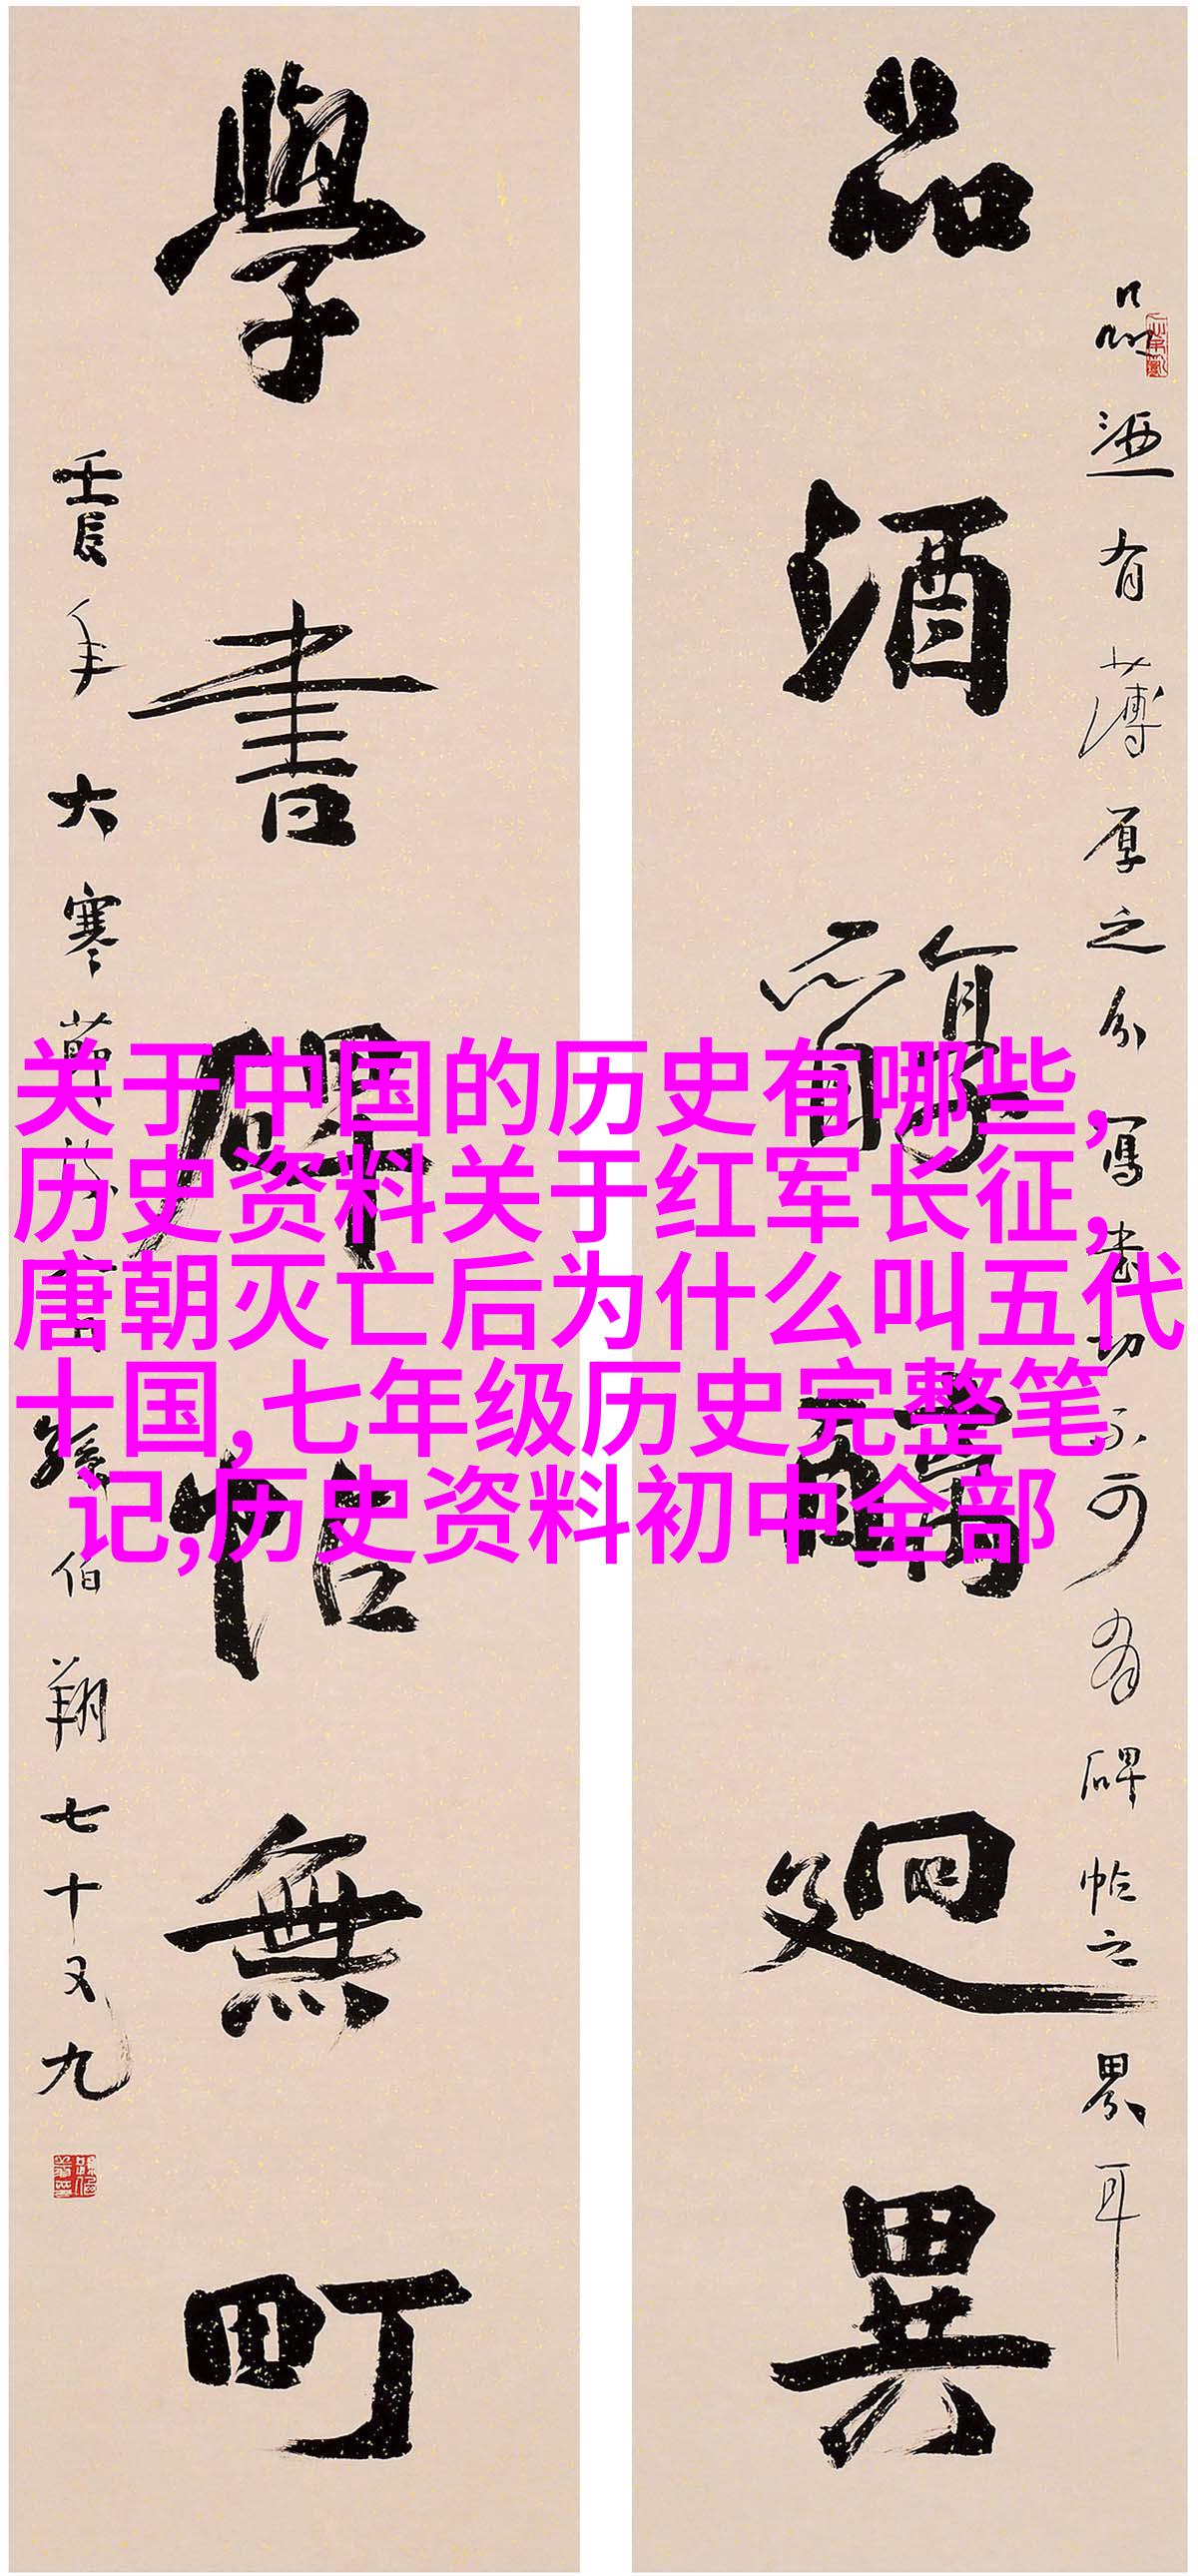 品酒醇醨迥異
品酒有薄厚之分寫書切不可有碑帖之界耳
學書碑帖無町
壬辰年大寒節
孫伯翔七十又九
关于中国的历史有哪些,
历史资料关于红军长征,
唐朝灭亡后为什么叫五代
十国,七年级历史完整笔
记,历史资料初中全部